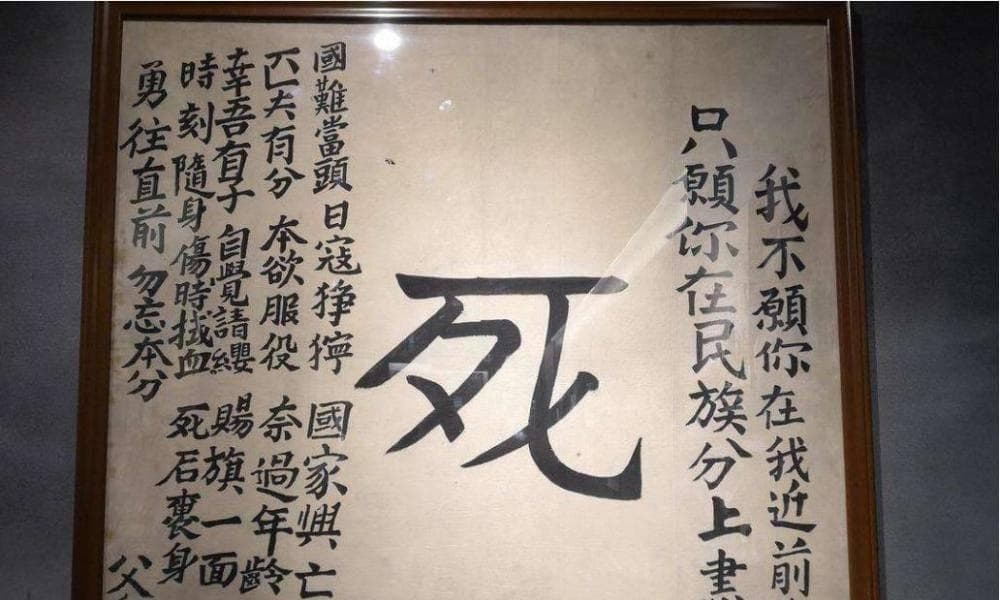 我不願你在我近前
只願你在民族分上
死
國難當頭 日寇猙獰 國家興亡
匹夫有分 本欲服役 奈過年齡
幸吾有子 自覺請纓 賜旗一面
時刻隨身 傷時拭血 死后裹身
勇往直前 勿忘本分 父